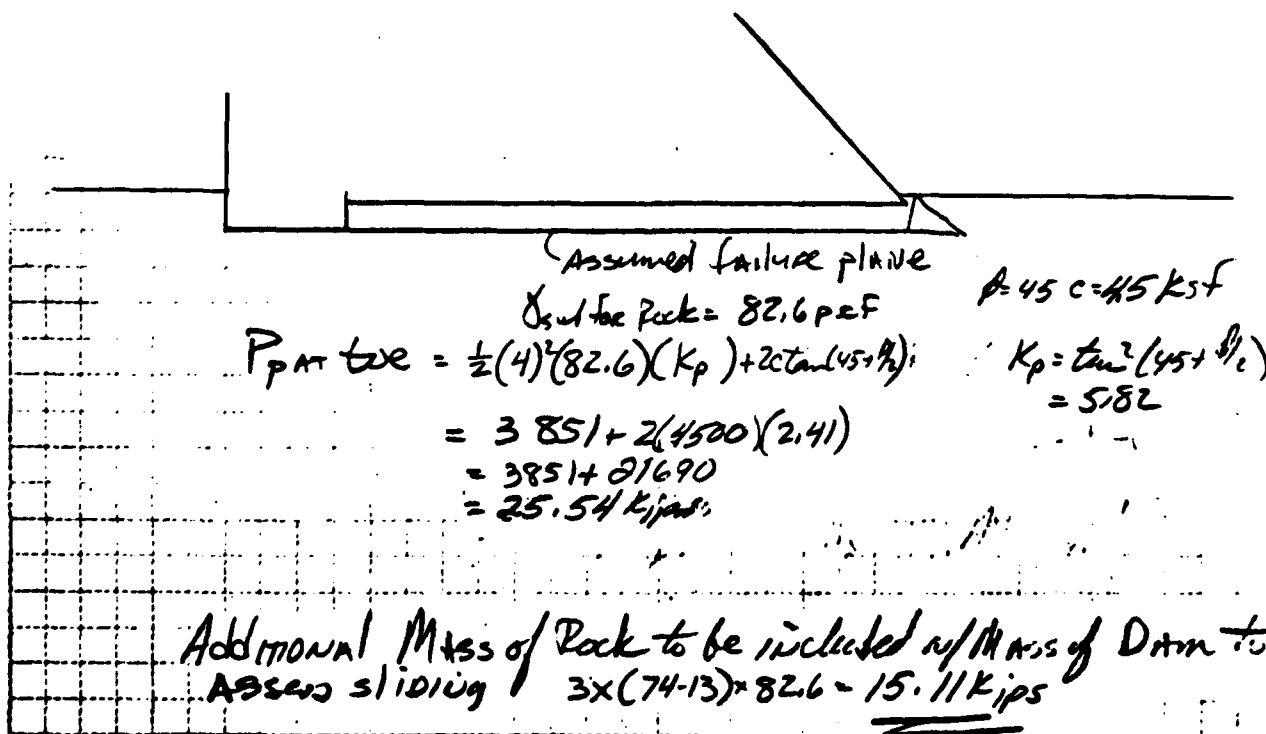 Assumed failure plane
φ=45 c=45 ksf
γsub for Rock = 82.6 pcf
Pp AT toe = 1/2(4)²(82.6)(Kp)+2ctan(45+φ/2)
Kp=tan²(45+φ/2)
= 5.82
= 3851+2(4500)(2.41)
= 3851+21690
= 25.54 kips
Additional Mass of Rock to be included w/Mass of Dam to
Assess sliding 3x(74-13)x82.6 = 15.11 kips